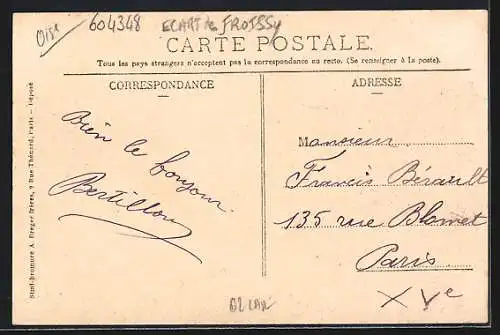 Oise
604348
ECART de FROISSY
CARTE POSTALE
Tous les pays étrangers n'acceptent pas la correspondance au recto. (Se renseigner à la poste).
CORRESPONDANCE
ADRESSE
Bien le bonjour.
Bertillon
Monsieur
Francis Bérault
135 rue Blomet
Paris
XVe
Simili-Bromure A. Breger frères, 9 Rue Thénard, Paris — Déposé